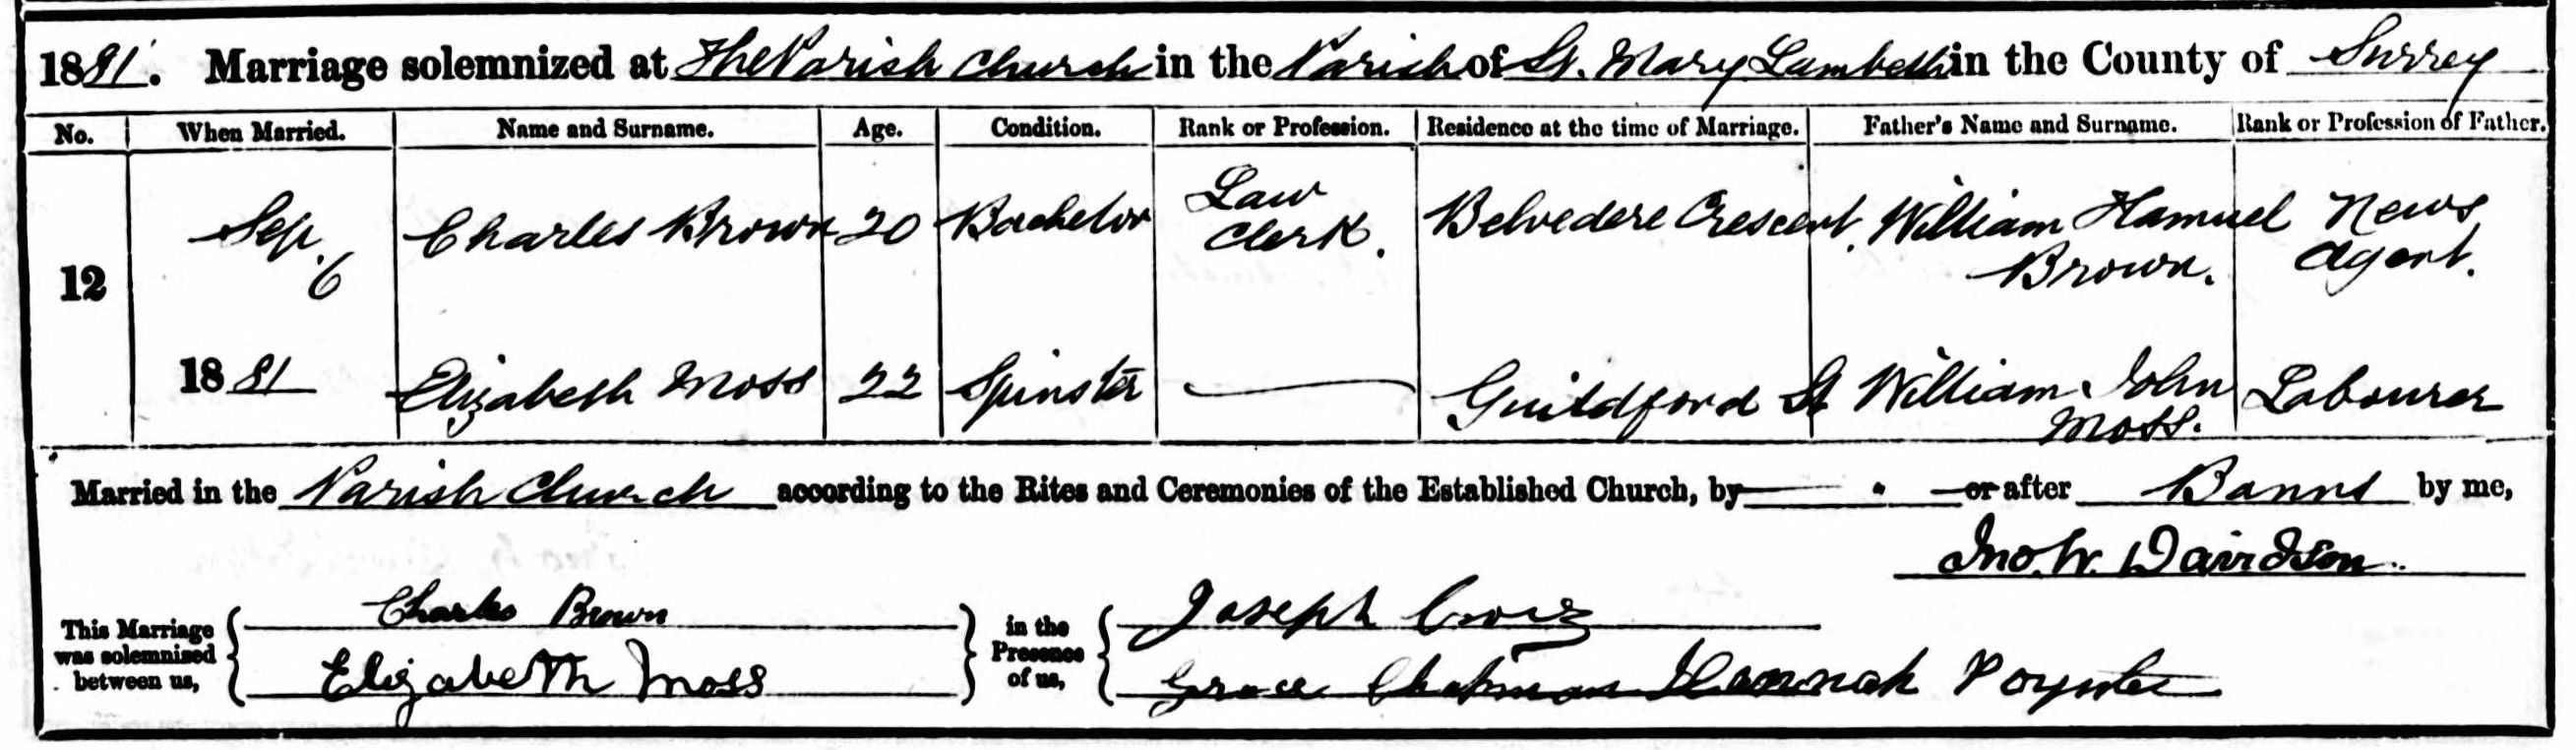 1881. Marriage solemnized at The Parish Church in the Parish of St. Mary Lambeth in the County of Surrey
No. When Married. Name and Surname. Age. Condition. Rank or Profession. Residence at the time of Marriage. Father's Name and Surname. Rank or Profession of Father.
12 Sep. 6 Charles Brown 20 Bachelor Law Clerk. Belvedere Crescent. William Hamuel Brown. News Agent.
1881 Elizabeth Moss 22 Spinster Guildford St William John Moss. Labourer
Married in the Parish Church according to the Rites and Ceremonies of the Established Church, by or after Banns by me,
Jno. W. Davidson.
This Marriage was solemnized between us, Charles Brown in the Presence of us, Joseph
Elizabeth Moss Grace Chapman Hannah Poynter